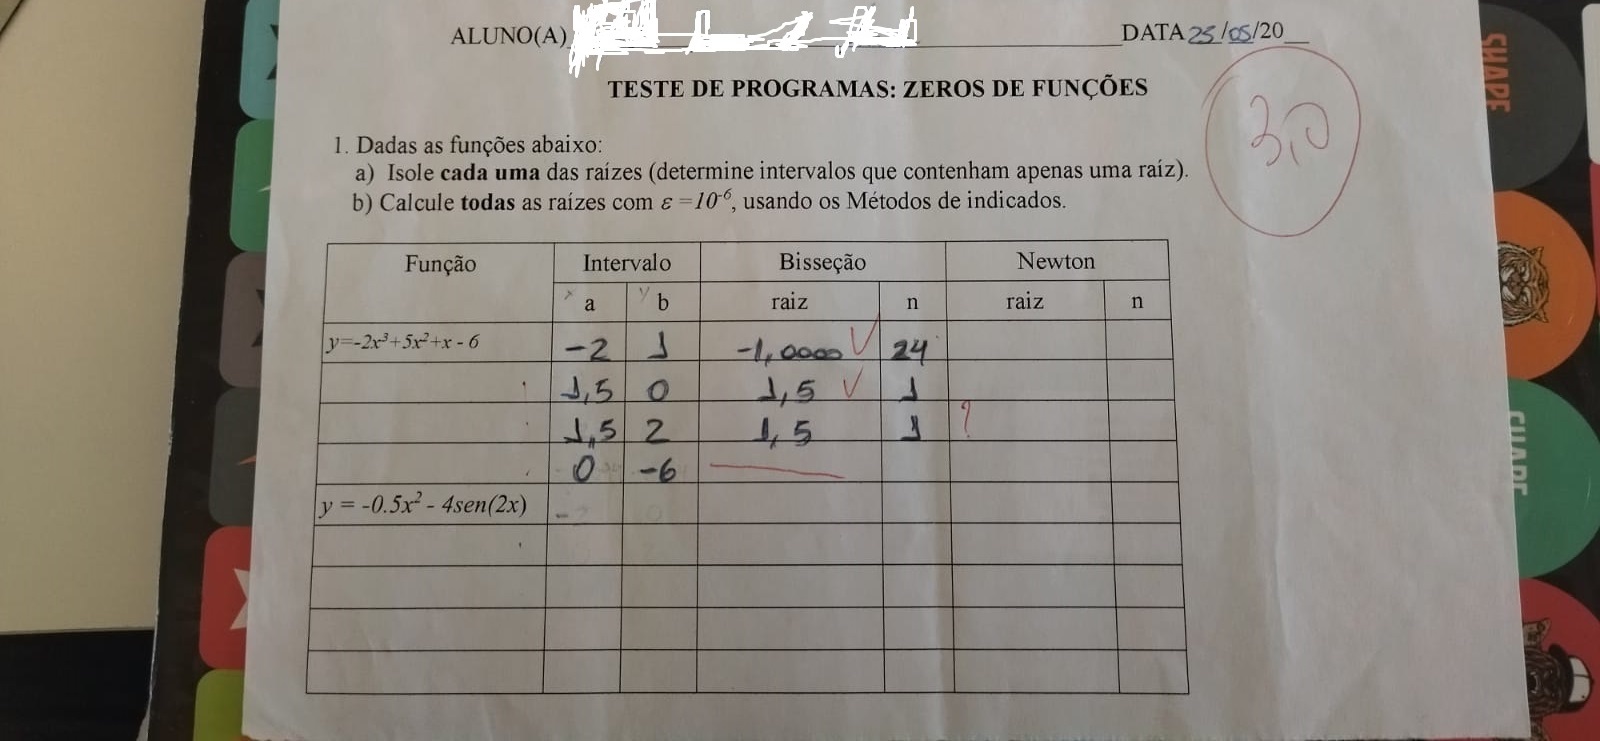 ALUNO(A) DATA 25/05/20__
TESTE DE PROGRAMAS: ZEROS DE FUNÇÕES
3,0
1. Dadas as funções abaixo:
a) Isole cada uma das raízes (determine intervalos que contenham apenas uma raíz).
b) Calcule todas as raízes com ε =10⁻⁶, usando os Métodos de indicados.
Função Intervalo Bisseção Newton
x a y b raiz n raiz n
y=-2x³+5x²+x - 6 -2 1 -1,0000 ✓ 24
1,5 0 1,5 ✓ 1
1,5 2 1,5 1 ?
0 -6
y = -0.5x² - 4sen(2x)
SHAPE
SHAPE